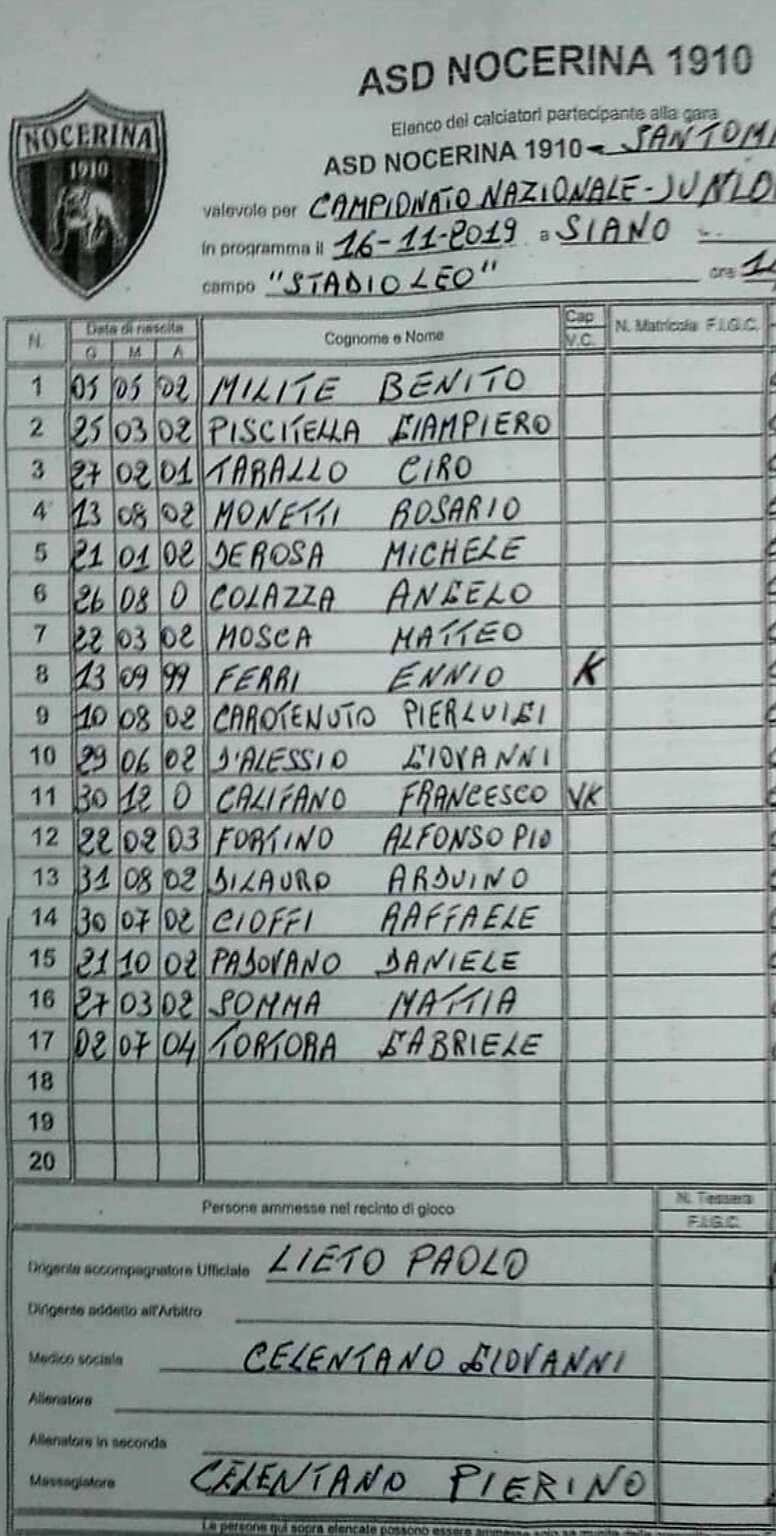 ASD NOCERINA 1910
NOCERINA
1910
Elenco dei calciatori partecipante alla gara
ASD NOCERINA 1910 - SANTOMA
valevole per CAMPIONATO NAZIONALE - JUNIO
in programma il 16-11-2019 a SIANO
campo "STADIO LEO" ore 1
N. Data di nascita Cognome e Nome Cap N. Matricola F.I.G.C.
G M A V.C.
1 05 05 02 MILITE BENITO
2 25 03 02 PISCITELLA GIAMPIERO
3 27 02 01 TARALLO CIRO
4 13 08 02 MONETTI ROSARIO
5 21 01 02 DEROSA MICHELE
6 26 08 0 COLAZZA ANGELO
7 22 03 02 MOSCA MATTEO
8 13 09 99 FERRI ENNIO K
9 10 08 02 CAROTENUTO PIERLUIGI
10 29 06 02 D'ALESSIO GIOVANNI
11 30 12 0 CALIFANO FRANCESCO VK
12 22 02 03 FORTINO ALFONSO PIO
13 31 08 02 DILAURO ARDUINO
14 30 07 02 CIOFFI RAFFAELE
15 21 10 02 PADOVANO DANIELE
16 27 03 02 SOMMA MATTIA
17 02 07 04 TORTORA GABRIELE
18
19
20
Persone ammesse nel recinto di gioco N. Tessera
F.I.G.C.
Dirigente accompagnatore Ufficiale LIETO PAOLO
Dirigente addetto all'Arbitro
Medico sociale CELENTANO GIOVANNI
Allenatore
Allenatore in seconda
Massagiatore CELENTANO PIERINO
Le persone qui sopra elencate possono essere ammesse